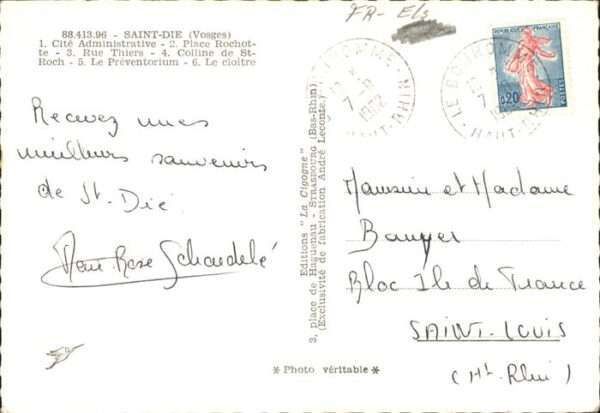 FR-Els
88.413.96 - SAINT-DIE (Vosges)
1. Cité Administrative - 2. Place Rochot-
te - 3. Rue Thiers - 4. Colline de St-
Roch - 5. Le Préventorium - 6. Le cloître
RÉPUBLIQUE FRANÇAISE
0,20
POSTES
7 - 8
1962
HAUT-RHIN
LE BONHOMME
HAUT-RHIN
Recevez mes
meilleurs souvenirs
de St. Dié
Rose
Editions "La Cigogne"
3, place de Haguenau - STRASBOURG (Bas-Rhin)
(Exclusivité de fabrication André Leconte.)
Monsieur et Madame
Bloc Ile de France
SAINT-LOUIS
(Ht Rhin)
* Photo véritable *